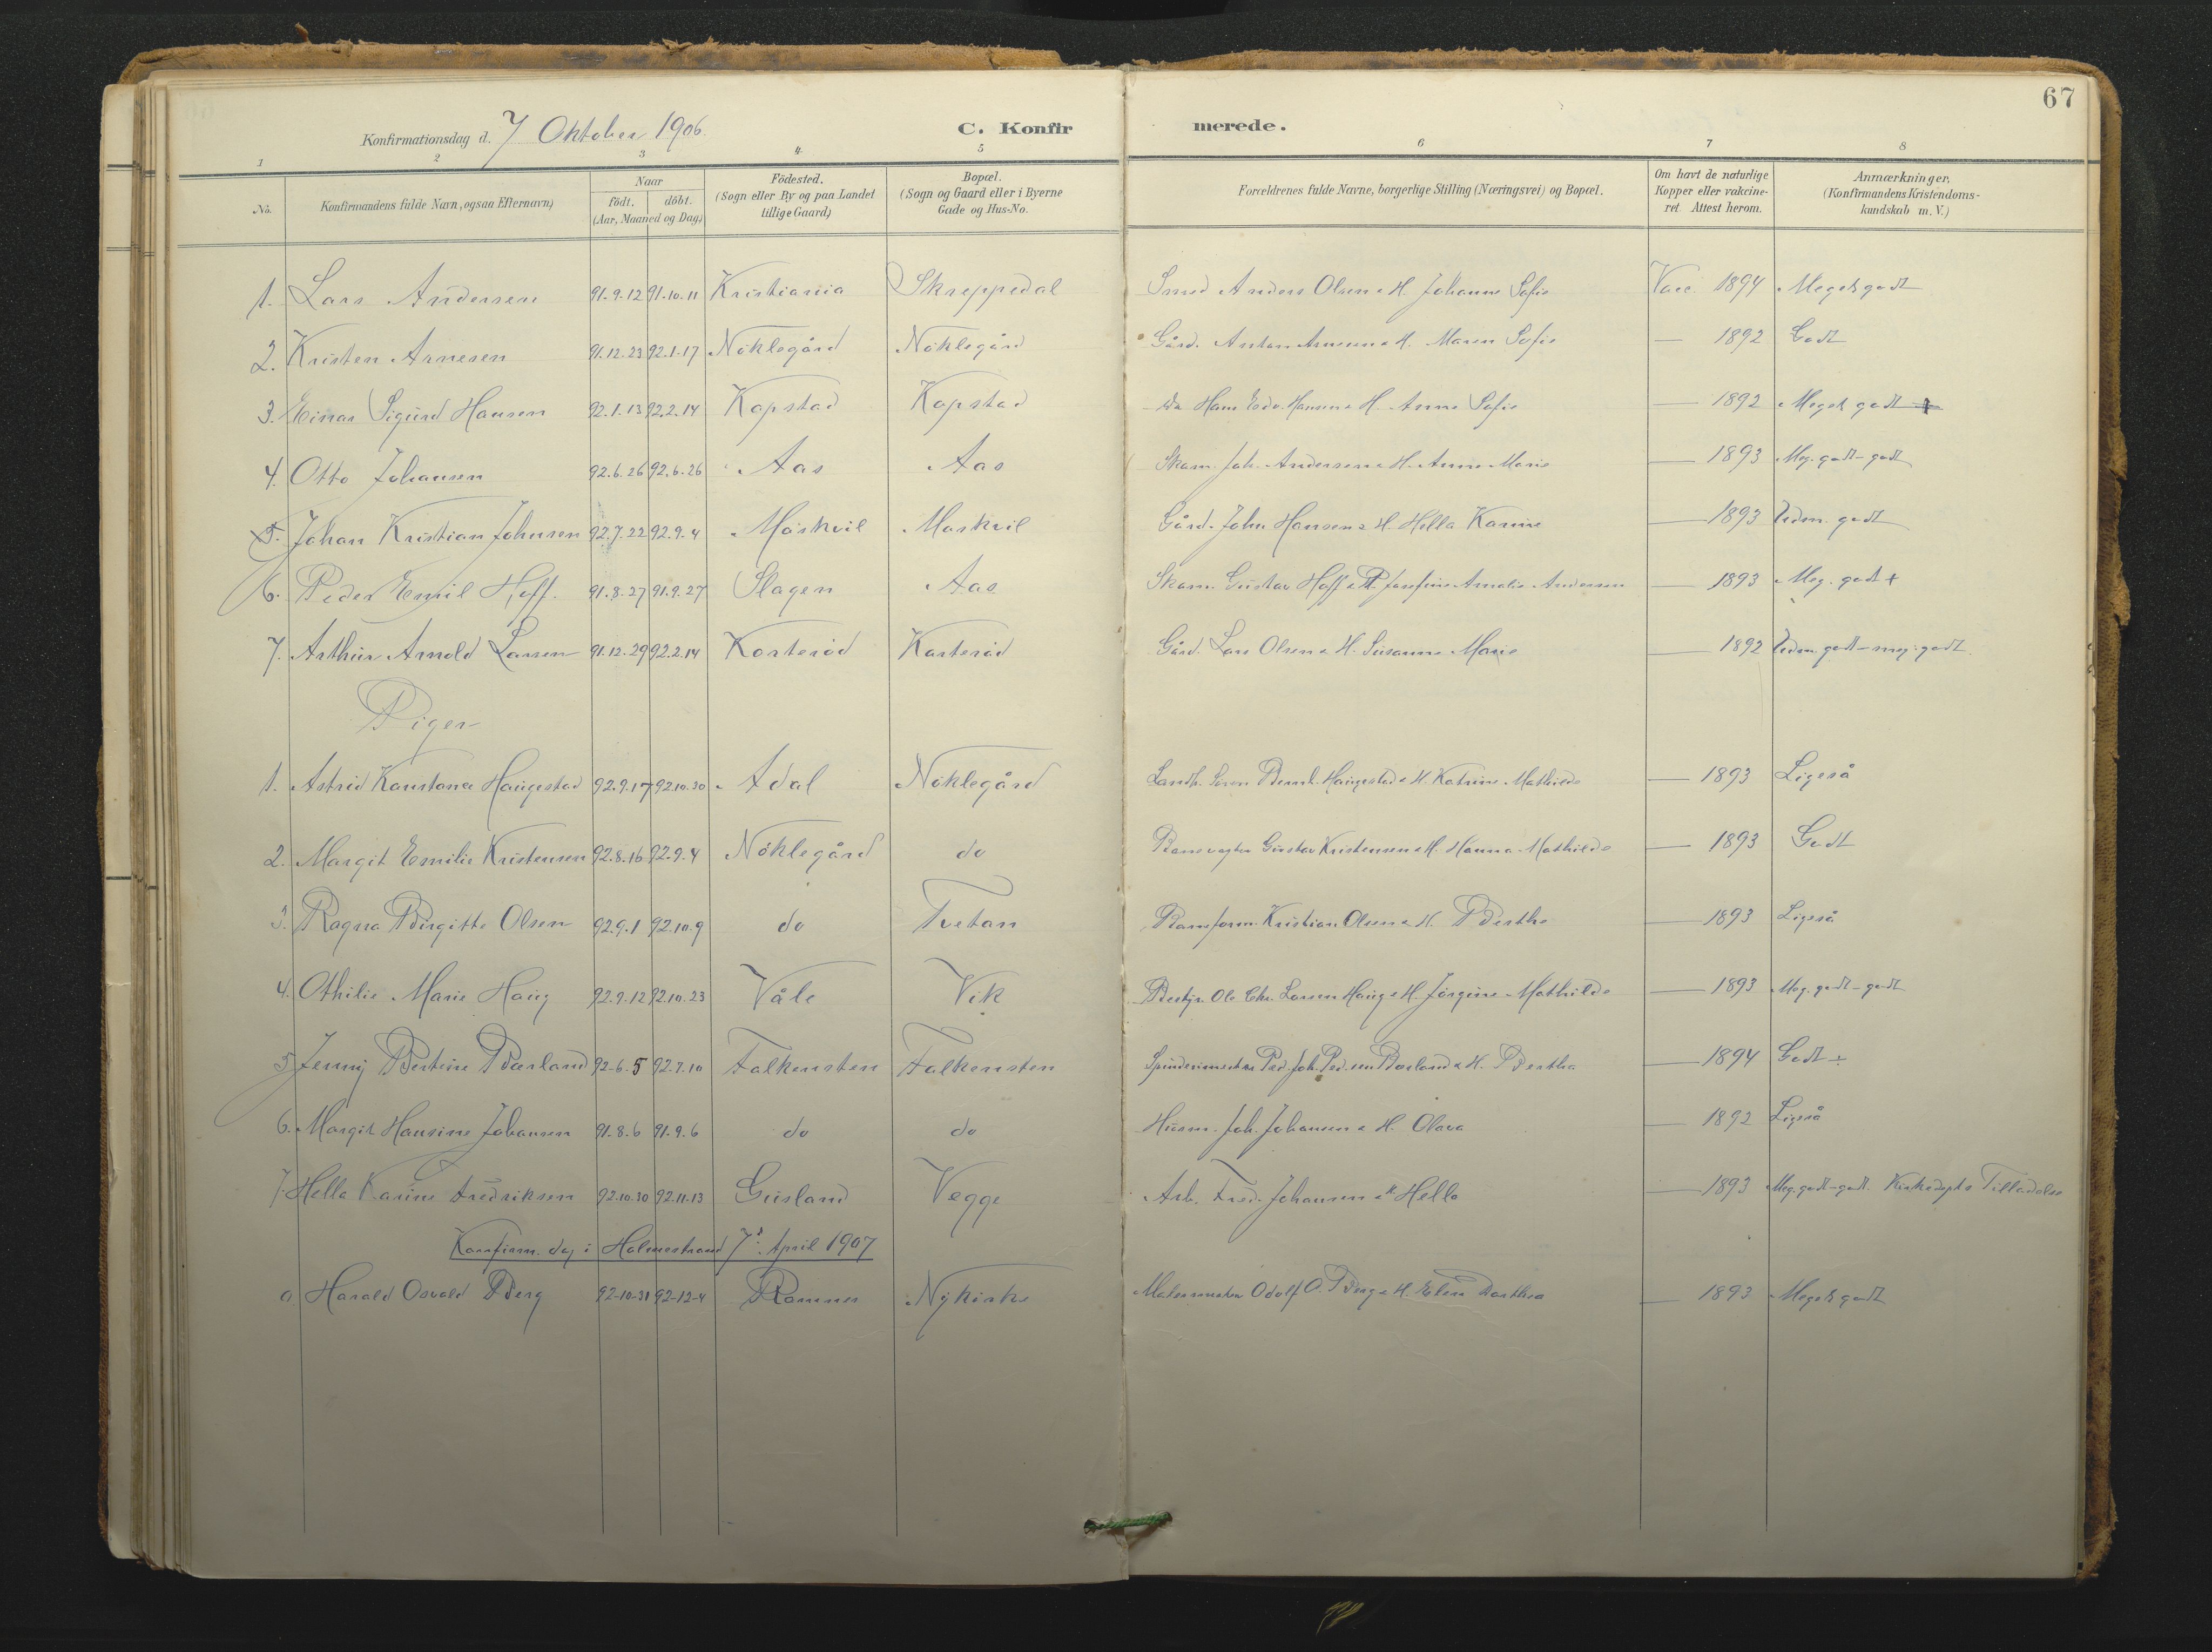 67
Konfirmationsdag d. 7 Oktober 1906.
C. Konfirmerede.
1 2 3 4 5 6 7 8
No. Konfirmandens fulde Navn, ogsaa Efternavn) Naar födt. döbt. (Aar, Maaned og Dag.) Födested. (Sogn eller By og paa Landet tillige Gaard) Bopæl. (Sogn og Gaard eller i Byerne Gade og Hus-No. Forældrenes fulde Navne, borgerlige Stilling (Næringsvei) og Bopæl. Om havt de naturlige Kopper eller vakcineret. Attest herom. Anmærkninger. (Konfirmandens Kristendomskundskab m. V.)
1. Lars Andersen 91.9.12 91.10.11 Kristiania Skreppedal Smed Anders Olsen & H. Johanne Sofie Vacc. 1894 Meget godt
2. Kristen Arnesen 91.12.23 92.1.17 Nöklegård Nöklegård Gård. Anton Arnesen & H. Maren Sofie — 1892 Godt
3. Einar Sigurd Hansen 92.1.13 92.2.14 Kopstad Kopstad do Hans Edv. Hansen & H. Anne Sofie — 1892 Meget godt
4. Otto Johansen 92.6.26 92.6.26 Aas Aas Skom. Joh. Andersen & H. Anne Marie — 1893 Meg. godt - godt
5. Johan Kristian Johnsen 92.7.22 92.9.4 Måskvil Maskvil Gård. John Hansen & H. Hella Karine — 1893 Udm. godt
6. Peder Emil Hoff. 91.8.27 91.9.27 Slagen Aas Skom. Gustav Hoff & P. Josefine Amalie Andersen — 1893 Meg. godt +
7. Arthur Arnold Larsen 91.12.29 92.2.14 Korteröd Korteröd Gård. Lars Olsen & H. Susanne Marie — 1892 Udm. godt - meg. godt.
Piger
1. Astrid Konstance Haugestad 92.9.17 92.10.30 Adal Nöklegård Landh. Soren Bernh. Haugestad & H. Katrine Mathilde — 1893 Ligeså
2. Margit Emilie Kristensen 92.8.16 92.9.4 Nöklegård do Banevogter Gustav Kristensen & H. Hanna Mathilde — 1893 Godt
3. Ragna Birgitte Olsen 92.9.1 92.10.9 do Tvetan Banform. Kristian Olsen & H. Berthe — 1893 Ligeså
4. Othilie Marie Haug 92.9.12 92.10.23 Våle Vik Bestyr. Ole Chr. Larsen Haug & H. Jörgine Mathilde — 1893 Meg. godt - godt
5. Jenny Bertine Barland 92-6.5 92.7.10 Falkensten Falkensten Spinderimester Ped. Joh. Pedersen Barland & H. Bertha — 1894 Godt ÷
6. Margit Hansine Johansen 91.8.6 91.9.6 do do Husm. Joh. Johansen & H. Olava — 1892 Ligeså
7. Hella Karine Fredriksen 92.10.30 92.11.13 Gusland Vegge Arb. Fred. Johansen & H. Hella — 1893 Meg. godt - godt. Kirkedepts Tilladelse
Konfirm. dag i Holmestrand 7d. April 1907
Harald Osvald Berg 92-10-31 92-12-4 Ramnes Nykirke Malermester Odolf O. Berg & H. Elen Dorthea — 1893 Meget godt